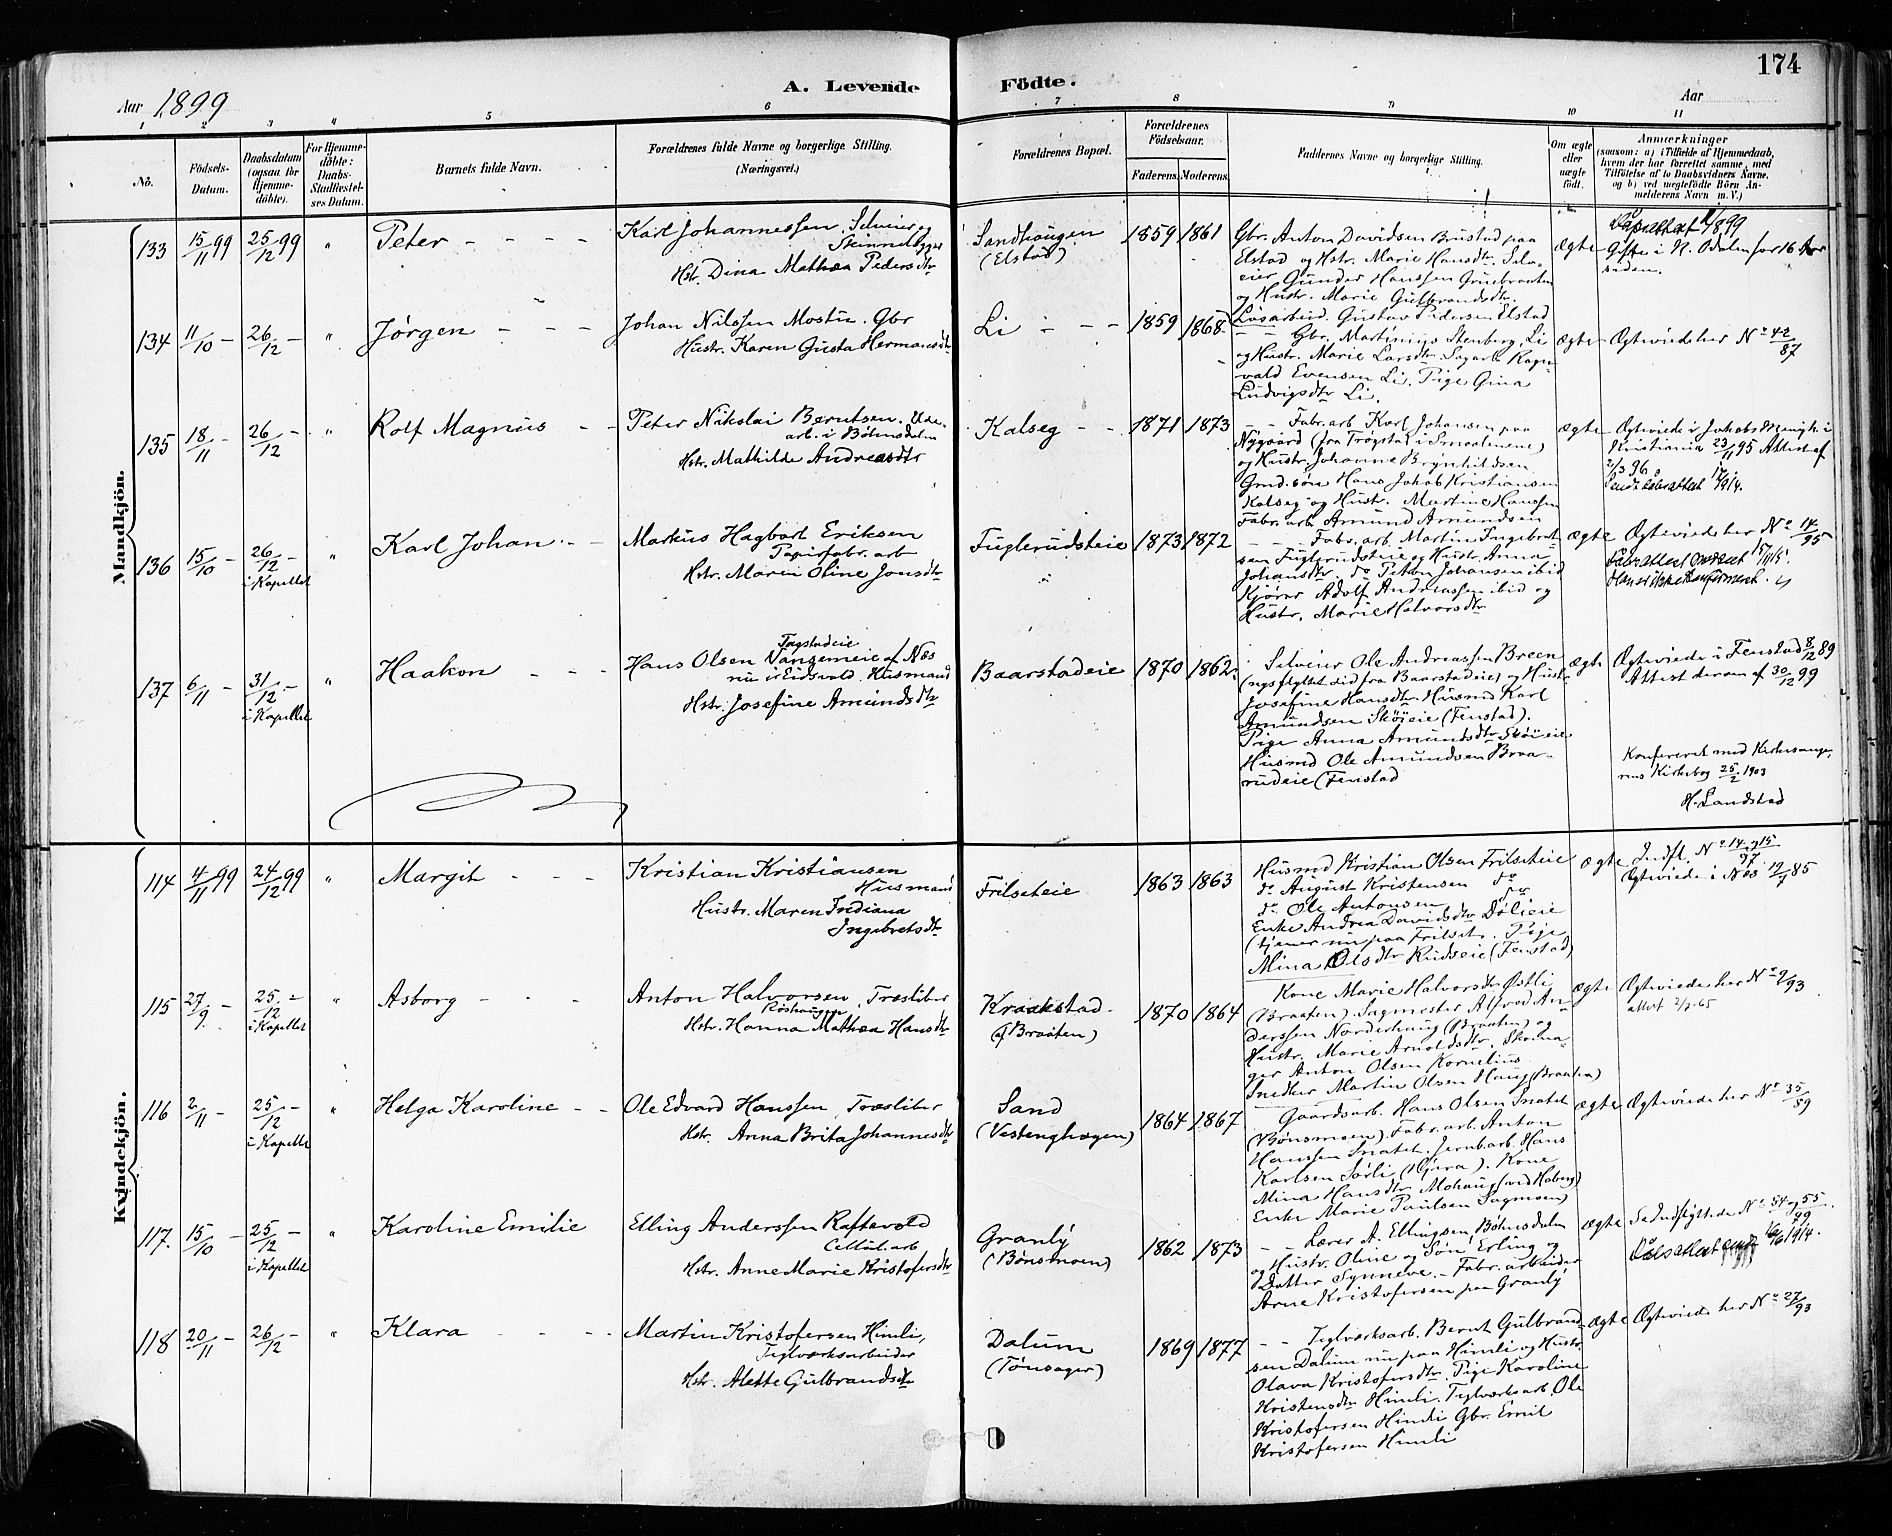 174
Aar 1899
A. Levende
Födte.
Aar
1 2 3 4 5 6 7 8 9 10 11
No.
Födsels-
Datum.
Daabsdatum
(ogsaa for
Hjemme-
döbte).
For Hjemme-
döbte:
Daabs-
Stadfæstel-
ses Datum.
Barnets fulde Navn.
Forældrenes fulde Navne og borgerlige Stilling.
(Næringsvei.)
Forældrenes Bopæl.
Forældrenes
Födselsaar.
Faderens. Moderens.
Faddernes Navne og borgerlige Stilling.
Om ægte
eller
uægte
födt.
Anmærkninger
(saasom: a) i Tilfælde af Hjemmedaab,
hvem der har forrettet samme, med
Tilföielse af to Daabsvidners Navne.
og b) ved uægtefödte Börn An-
melderens Navn m. V.)
Mandkjön.
133 15/11 99 25/12 99 "
Peter
Karl Johannessen, Selveier og
Skinnelægger
Hst. Dina Mathea Pedersdtr
Sandhaugen
(Elstad)
1859 1861
Gbr. Anton Davidsen Brustad paa
Elstad og Hstr. Marie Hansdtr. Selv-
eier Gunder Hanssen Gruebraaten
og Hustr. Marie Gulbrandsdtr.
Løsarbeid. Gustav Pedersen Elstad
ægte
Gifte i N. Odalen for 16 Aar
siden.
134 11/10 - 26/12 - "
Jørgen
Johan Nilssen Mostu. Gbr
Hustr. Karen Gusta Hermansdtr
Li
1859 1868
Gbr. Martinius Stenberg, Li
og Hustr. Marie Larsdtr. Sagarb. Ragn-
vald Evensen Li. Pige Gina
Ludvigsdtr Li.
ægte
Ægteviede her No 42/87
135 18/11 - 26/12 - "
Rolf Magnus
Peter Nikolai Berntsen. Ude-
arb. i Bøhnsdalen
Hst. Mathilde Andreasdtr
Kalseg
1871 1873
Fabr. arb Karl Johansen paa
Nygaard (fra Trøgstad i Smaalenene)
og Hustr. Johanne Brynhildsen
Grmd. søn Hans Jakob Kristiansen
Kalseg og Hustr. Martine Hanssen
Fabr. arb Amund Amundsen
ægte
Ægteviede i Jakobs Menigh. i
Kristiania 23/11 95 Attest af
2/3 96.
136 15/10 - 26/12 - i Kapellet "
Karl Johan
Markus Hagbart Eriksen
Papirfabr. arb
Hstr. Maren Oline Jonsdtr
Fuglerudsteie
1873 1872
Fabr. arb Martin Ingebret-
sen Fuglerudsteie og Hustr. Anna
Johansdtr do Petter Johansen ibid
Kjører Adolf Andreassen ibid og
Hustr. Marie Halvorsdtr
ægte
Ægteviede her No 14/95
137 6/11 - 31/12 - i Kapellet "
Haakon
Tagstadeie
Hans Olsen Vangemeie af Næs
nu i Eidsvold. Husmand
Hstr. Josefine Amundsdtr
Baarstadeie
1870 1862
Selveier Ole Andreassen Breen
(nys flyttet did fra Baarstadeie) og Hustr
Josefine Hansdtr. Husmd Karl
Amundsen Skøieie (Fenstad).
Pige Anna Amundsdtr Skøieie
Husmd Ole Amundsen Braa-
rudeie (Fenstad
ægte
Ægteviede i Fenstad 8/12 89
Attest derom af 30/12 99
Konfereret med Kirkesange-
rens Kirkebog 25/2 1903
H. Landstad
Kvindekjön.
114 4/11 99 24/12 99 "
Margit
Kristian Kristiansen
Husmand
Hustr. Maren Indiana
Ingebretsdtr
Frilseteie
1863 1863
Husmd Kristian Olsen Frilseteie
do August Kristensen do
do Ole Antonsen do
Enke Andrea Davidsdtr Dølieie
(tjener nu paa Frilset. Pige
Mina Olsdtr Rudseie (Fenstad)
ægte
Indfl. No 14 og 15/97
Ægteviede i Næs 19/7 85
115 27/9 - 25/12 - i Kapellet "
Asborg
Anton Halvorsen, Træsliber
Røshaugen
Hstr. Hanna Mathea Hansdtr
Kraakstad
(af Braaten)
1870 1864
Kone Marie Halvorsdtr Østli
(Braaten). Sagmester Alfred An-
derssen Norderhaug (Braaten) og
Hustr. Marie Arnoldsdtr. Skoma-
ger Anton Olsen Kornelius
Snedker Martin Olsen Haug (Braaten)
ægte
Ægteviede her No 9/93
attest 2/7-65
116 2/11 - 25/12 - i Kapellet "
Helga Karoline
Ole Edvard Hanssen, Træsliber
Hstr. Anna Brita Johannesdtr
Sand
(Vestenghagen)
1864 1867
Gaardsarb. Hans Olsen Snatet
(Bønsmoen). Fabr. arb. Anton
Hanssen Snatet. Jernb.arb. Hans
Karlsen Sørli (Hjera). Kone
Mina Hansdtr Mohaug (ved Hoberg)
Enke Marie Paulsen Sagmoen)
ægte
Ægteviede her No 35/89
117. 15/10 - 25/12 - i Kapellet "
Karoline Emilie
Elling Anderssen Raftevold
Cellul. arb
Hst. Anne Marie Kristofersdtr
Granly
(Bønsmoen)
1862 1873
Lærer A. Ellingsen, Bøhnsdalen
og Hustr. Oline og Søn Erling og
Datter Synneve. - Fabr. arbeider
Arne Kristofersen paa Granly
ægte
Se Indflyttede No 54 og 55/99
118 20/11 - 26/12 - "
Klara
Martin Kristofersen Himli,
Teglværksarbeider
Hst. Alette Gulbrandsdtr
Dalum
(Tønsager)
1869 1877
Teglværksarb. Bernt Gulbrand-
sen Dalum nu paa Himli og Hustr.
Olava Kristofersdtr. Pige Karoline
Kristensdtr Himli. Teglværksarb. Ole
Kristofersen Himli Gbr. Emil
Kristofersen Himli
ægte
Ægteviede her No 27/93